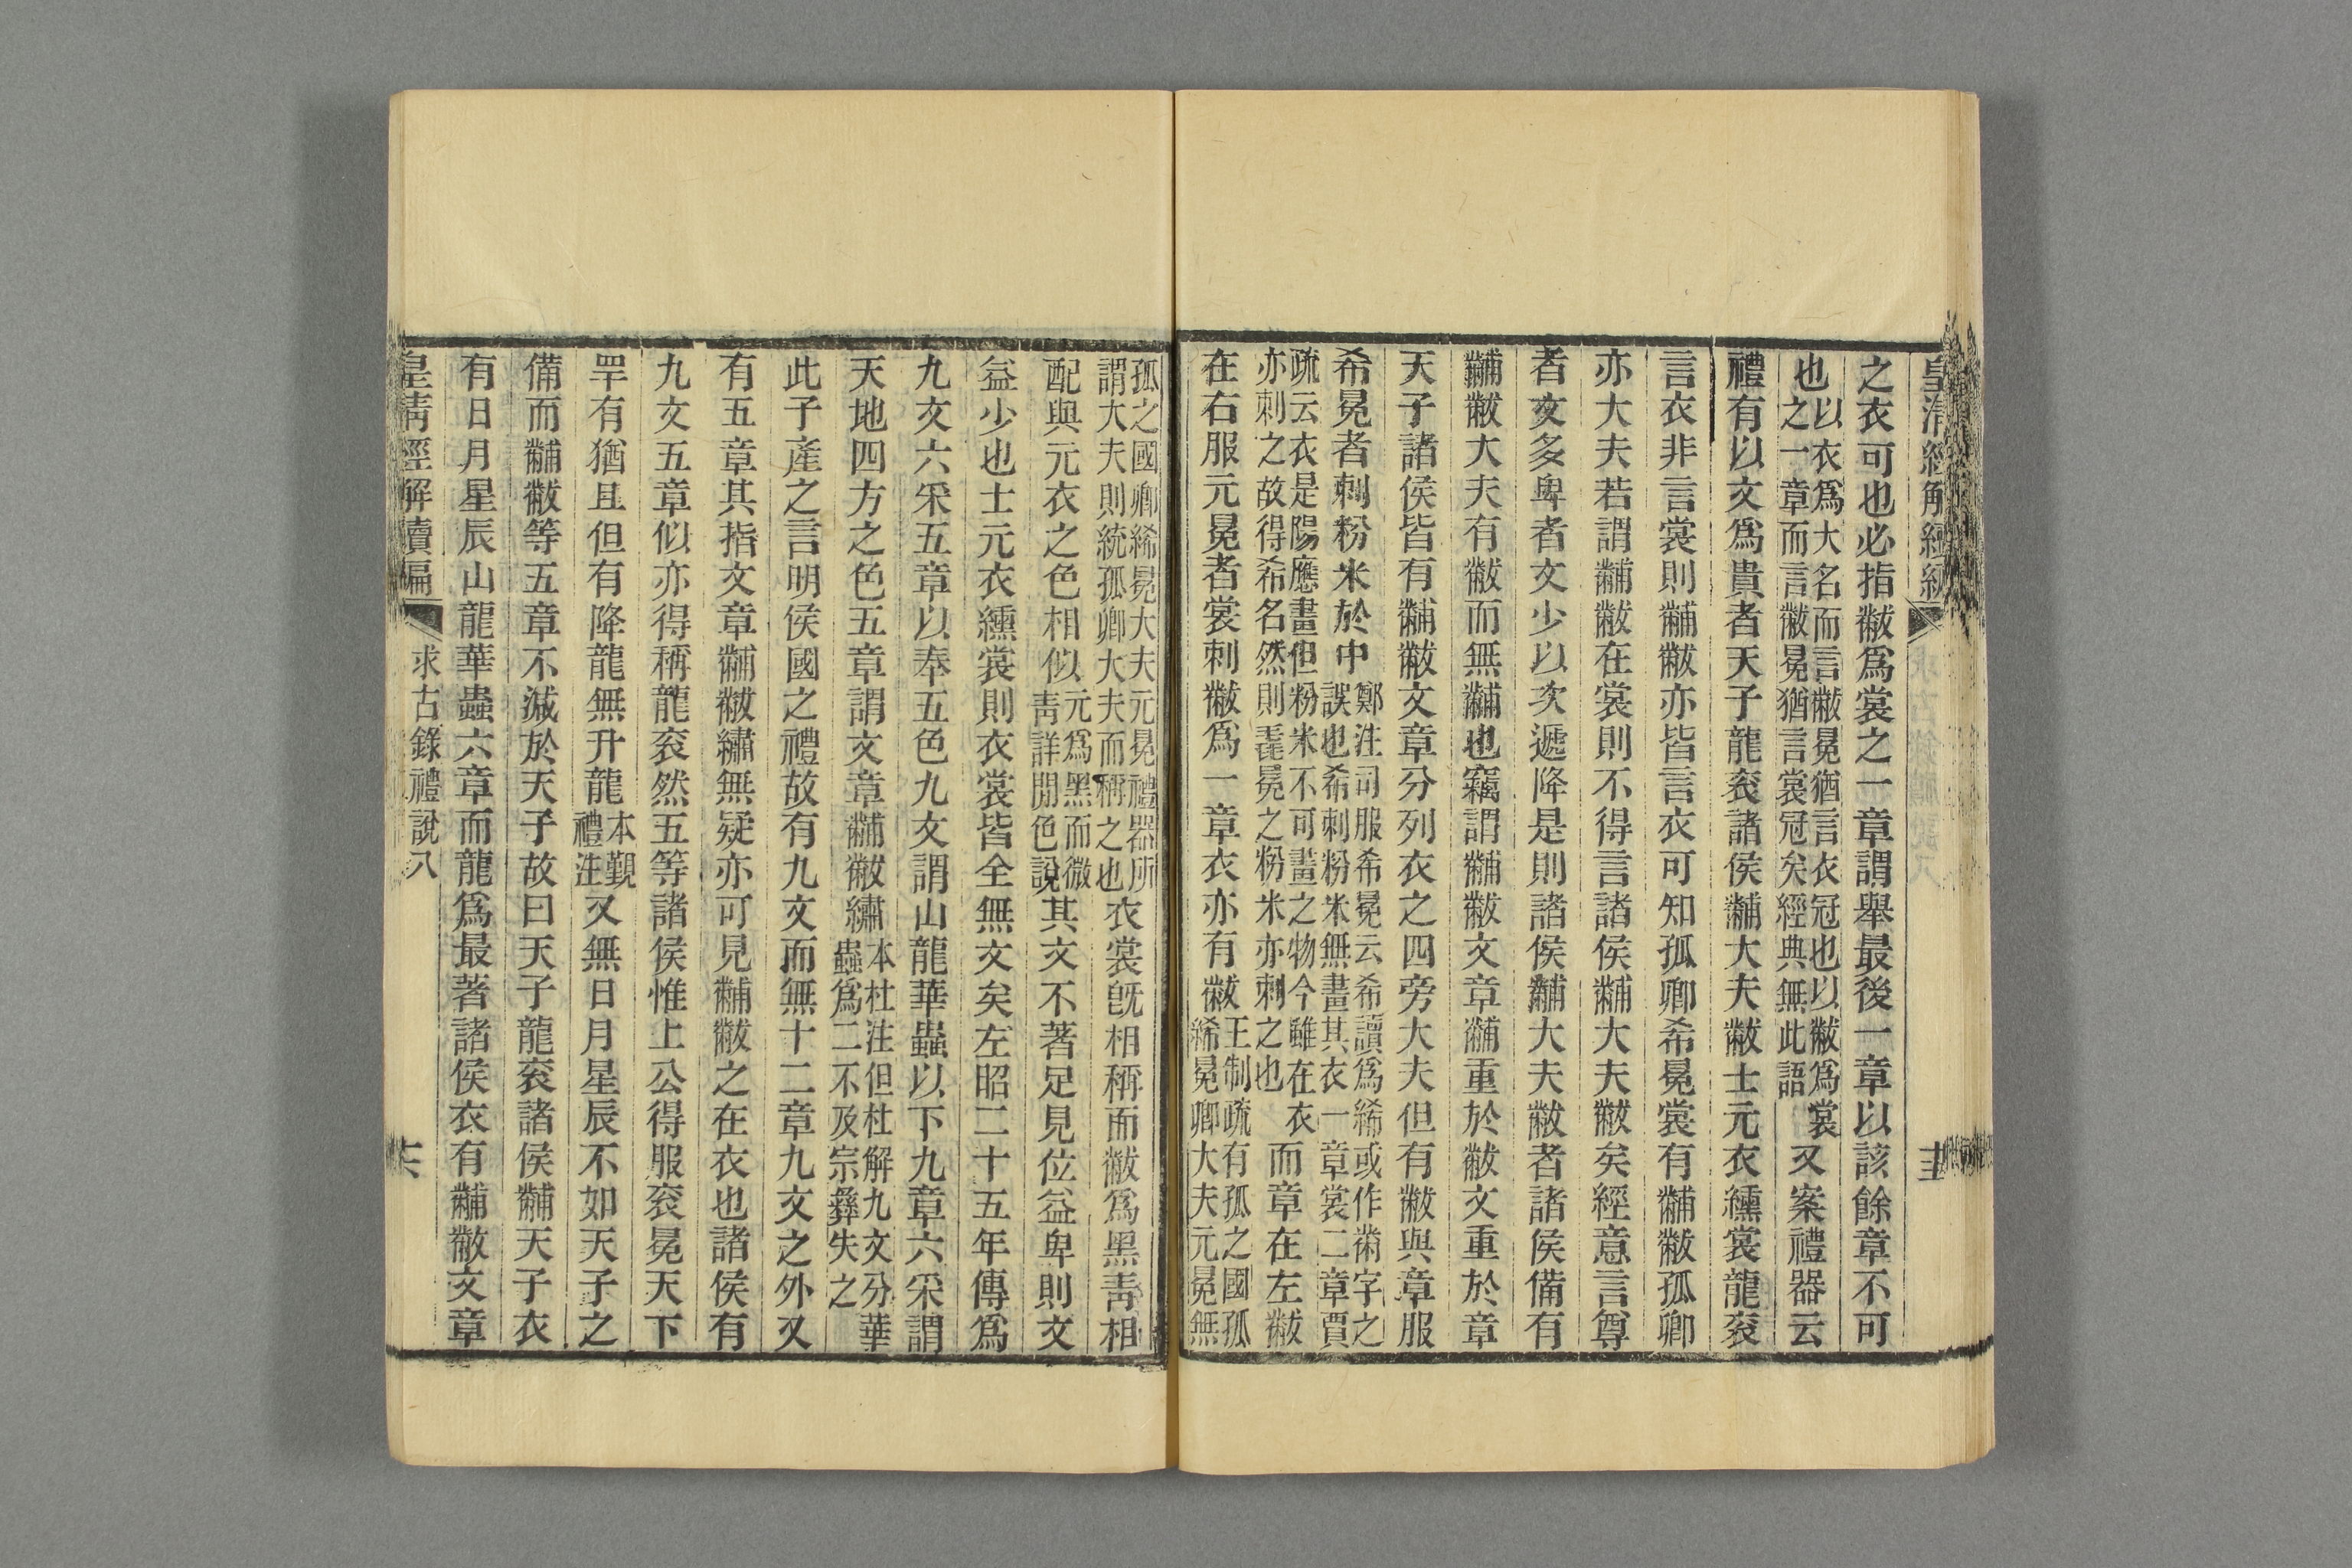 皇清經解續編
之衣可也必指黻爲裳之一章謂舉最後一章以該餘章不可
也以衣爲大名而言黻冕猶言衣冠也以黻爲裳
之一章而言黻冕猶言裳冠矣經典無此語又案禮器云
禮有以文爲貴者天子龍衮諸侯黼大夫黻士元衣纁裳龍衮
言衣非言裳則黼黻亦皆言衣可知孤卿希冕裳有黼黻孤卿
亦大夫若謂黼黻在裳則不得言諸侯黼大夫黻矣經意言尊
者文多卑者文少以次遞降是則諸侯黼大夫黻者諸侯備有
黼黻大夫有黻而無黼也竊謂黼黻文章黼重於黻文重於章
天子諸侯皆有黼黻文章分列衣之四旁大夫但有黻與章服
希冕者刺粉米於中鄭注司服希冕云希讀爲絺或作黹字之
誤也希刺粉米無畫其衣一章裳二章賈
疏云衣是陽應畫但粉米不可畫之物今雖在衣
亦刺之故得希名然則毳冕之粉米亦刺之也而章在左黻
在右服元冕者裳刺黻爲一章衣亦有黻王制疏有孤之國孤
絺冕卿大夫元冕無
孤之國卿絺冕大夫元冕禮器所
謂大夫則統孤卿大夫而稱之也衣裳既相稱而黻爲黑靑相
配與元衣之色相似元爲黑而微
靑詳閒色說其文不著足見位益卑則文
益少也士元衣纁裳則衣裳皆全無文矣左昭二十五年傳爲
九文六采五章以奉五色九文謂山龍華蟲以下九章六采謂
天地四方之色五章謂文章黼黻繡本杜注但杜解九文分華
蟲爲二不及宗彝失之
此子產之言明侯國之禮故有九文而無十二章九文之外又
有五章其指文章黼黻繡無疑亦可見黼黻之在衣也諸侯有
九文五章似亦得稱龍衮然五等諸侯惟上公得服衮冕天下
罕有猶且但有降龍無升龍本覲
禮注又無日月星辰不如天子之
備而黼黻等五章不減於天子故曰天子龍衮諸侯黼天子衣
有日月星辰山龍華蟲六章而龍爲最著諸侯衣有黼黻文章
皇清經解續編 求古錄禮說八